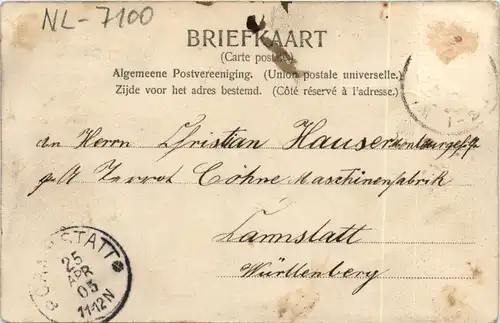 NL-7100
BRIEFKAART
(Carte postale)
Algemeene Postvereeniging. (Union postale universelle.)
Zijde voor het adres bestemd. (Côté réservé à l'adresse.)
An Herrn Christian Hauser
Terrot Söhne Maschinenfabrik
Cannstatt
Württemberg
CANNSTATT
25
APR
05
11-12N